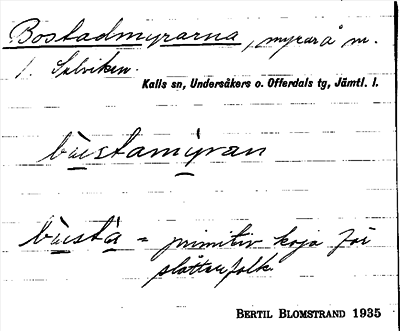 Bostadmyrarna, myrar å n.
l. Salviken.
Kalls sn, Undersåkers o. Offerdals tg, Jämtl. l.
bùstamýran
bùstà = primitiv koja för
slåtterfolk
BERTIL BLOMSTRAND 1935